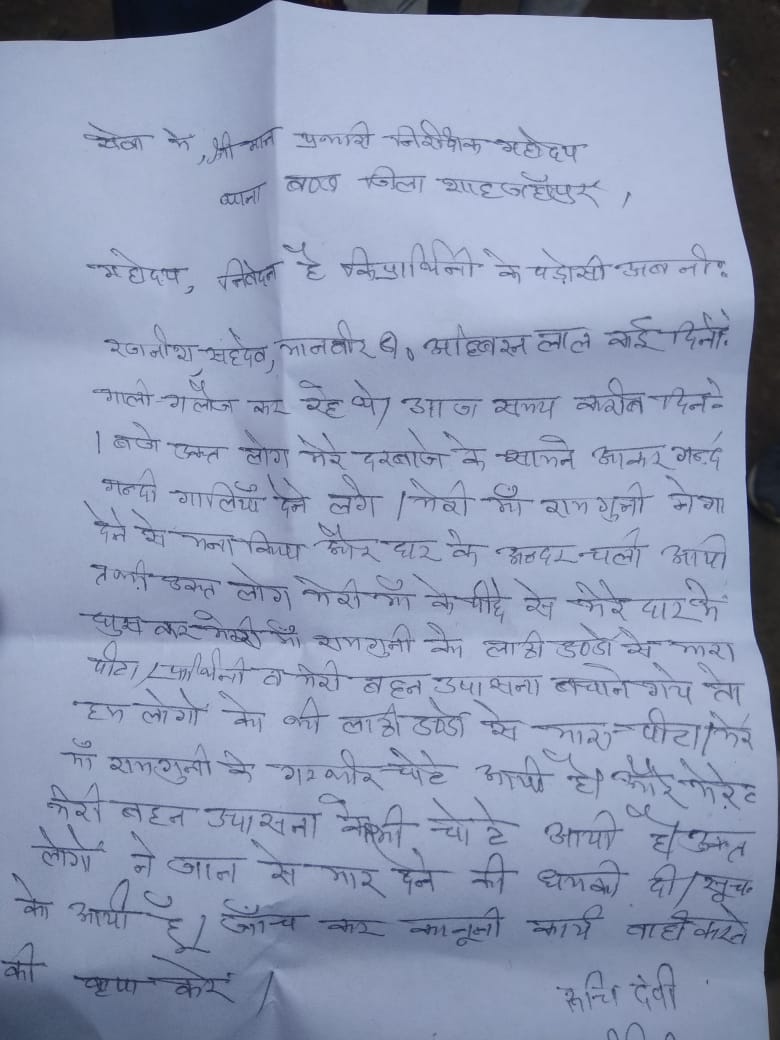 सेवा में, श्री मान प्रभारी निरीक्षक महोदय
थाना बण्डा जिला शाहजहाँपुर,
महोदय, निवेदन है कि प्रार्थिनी के पड़ोसी अवनी
रजनीश, सहदेव, मानवीर S. लाल कई दिनों
गाली-गलौज कर रहे थे। आज समय करीब दिन
1 बजे उक्त लोग मेरे दरबाजे के सामने आकर गन्दी
गन्दी गालियाँ देने लगे। मेरी माँ रामगुनी ने गा
देने से मना किया और घर के अन्दर चली आयी
तभी उक्त लोग मेरी माँ के पीछे से मेरे घर में
घुस कर मेरी माँ रामगुनी को लाठी डण्डो से मारा
पीटा। प्रार्थिनी व मेरी बहन उपासना बचाने गये तो
हम लोगों को भी लाठी डण्डो से मारा-पीटा। मेरे
माँ रामगुनी के गम्भीर चोटे आयी है। और मेरे व
मेरी बहन उपासना के भी चोटे आयी है। उक्त
लोगों ने जान से मार देने की धमकी दी। सूच
को आयी हूँ। जाँच कर कानूनी कार्य वाही करने
की कृपा करें।
रूचि देवी